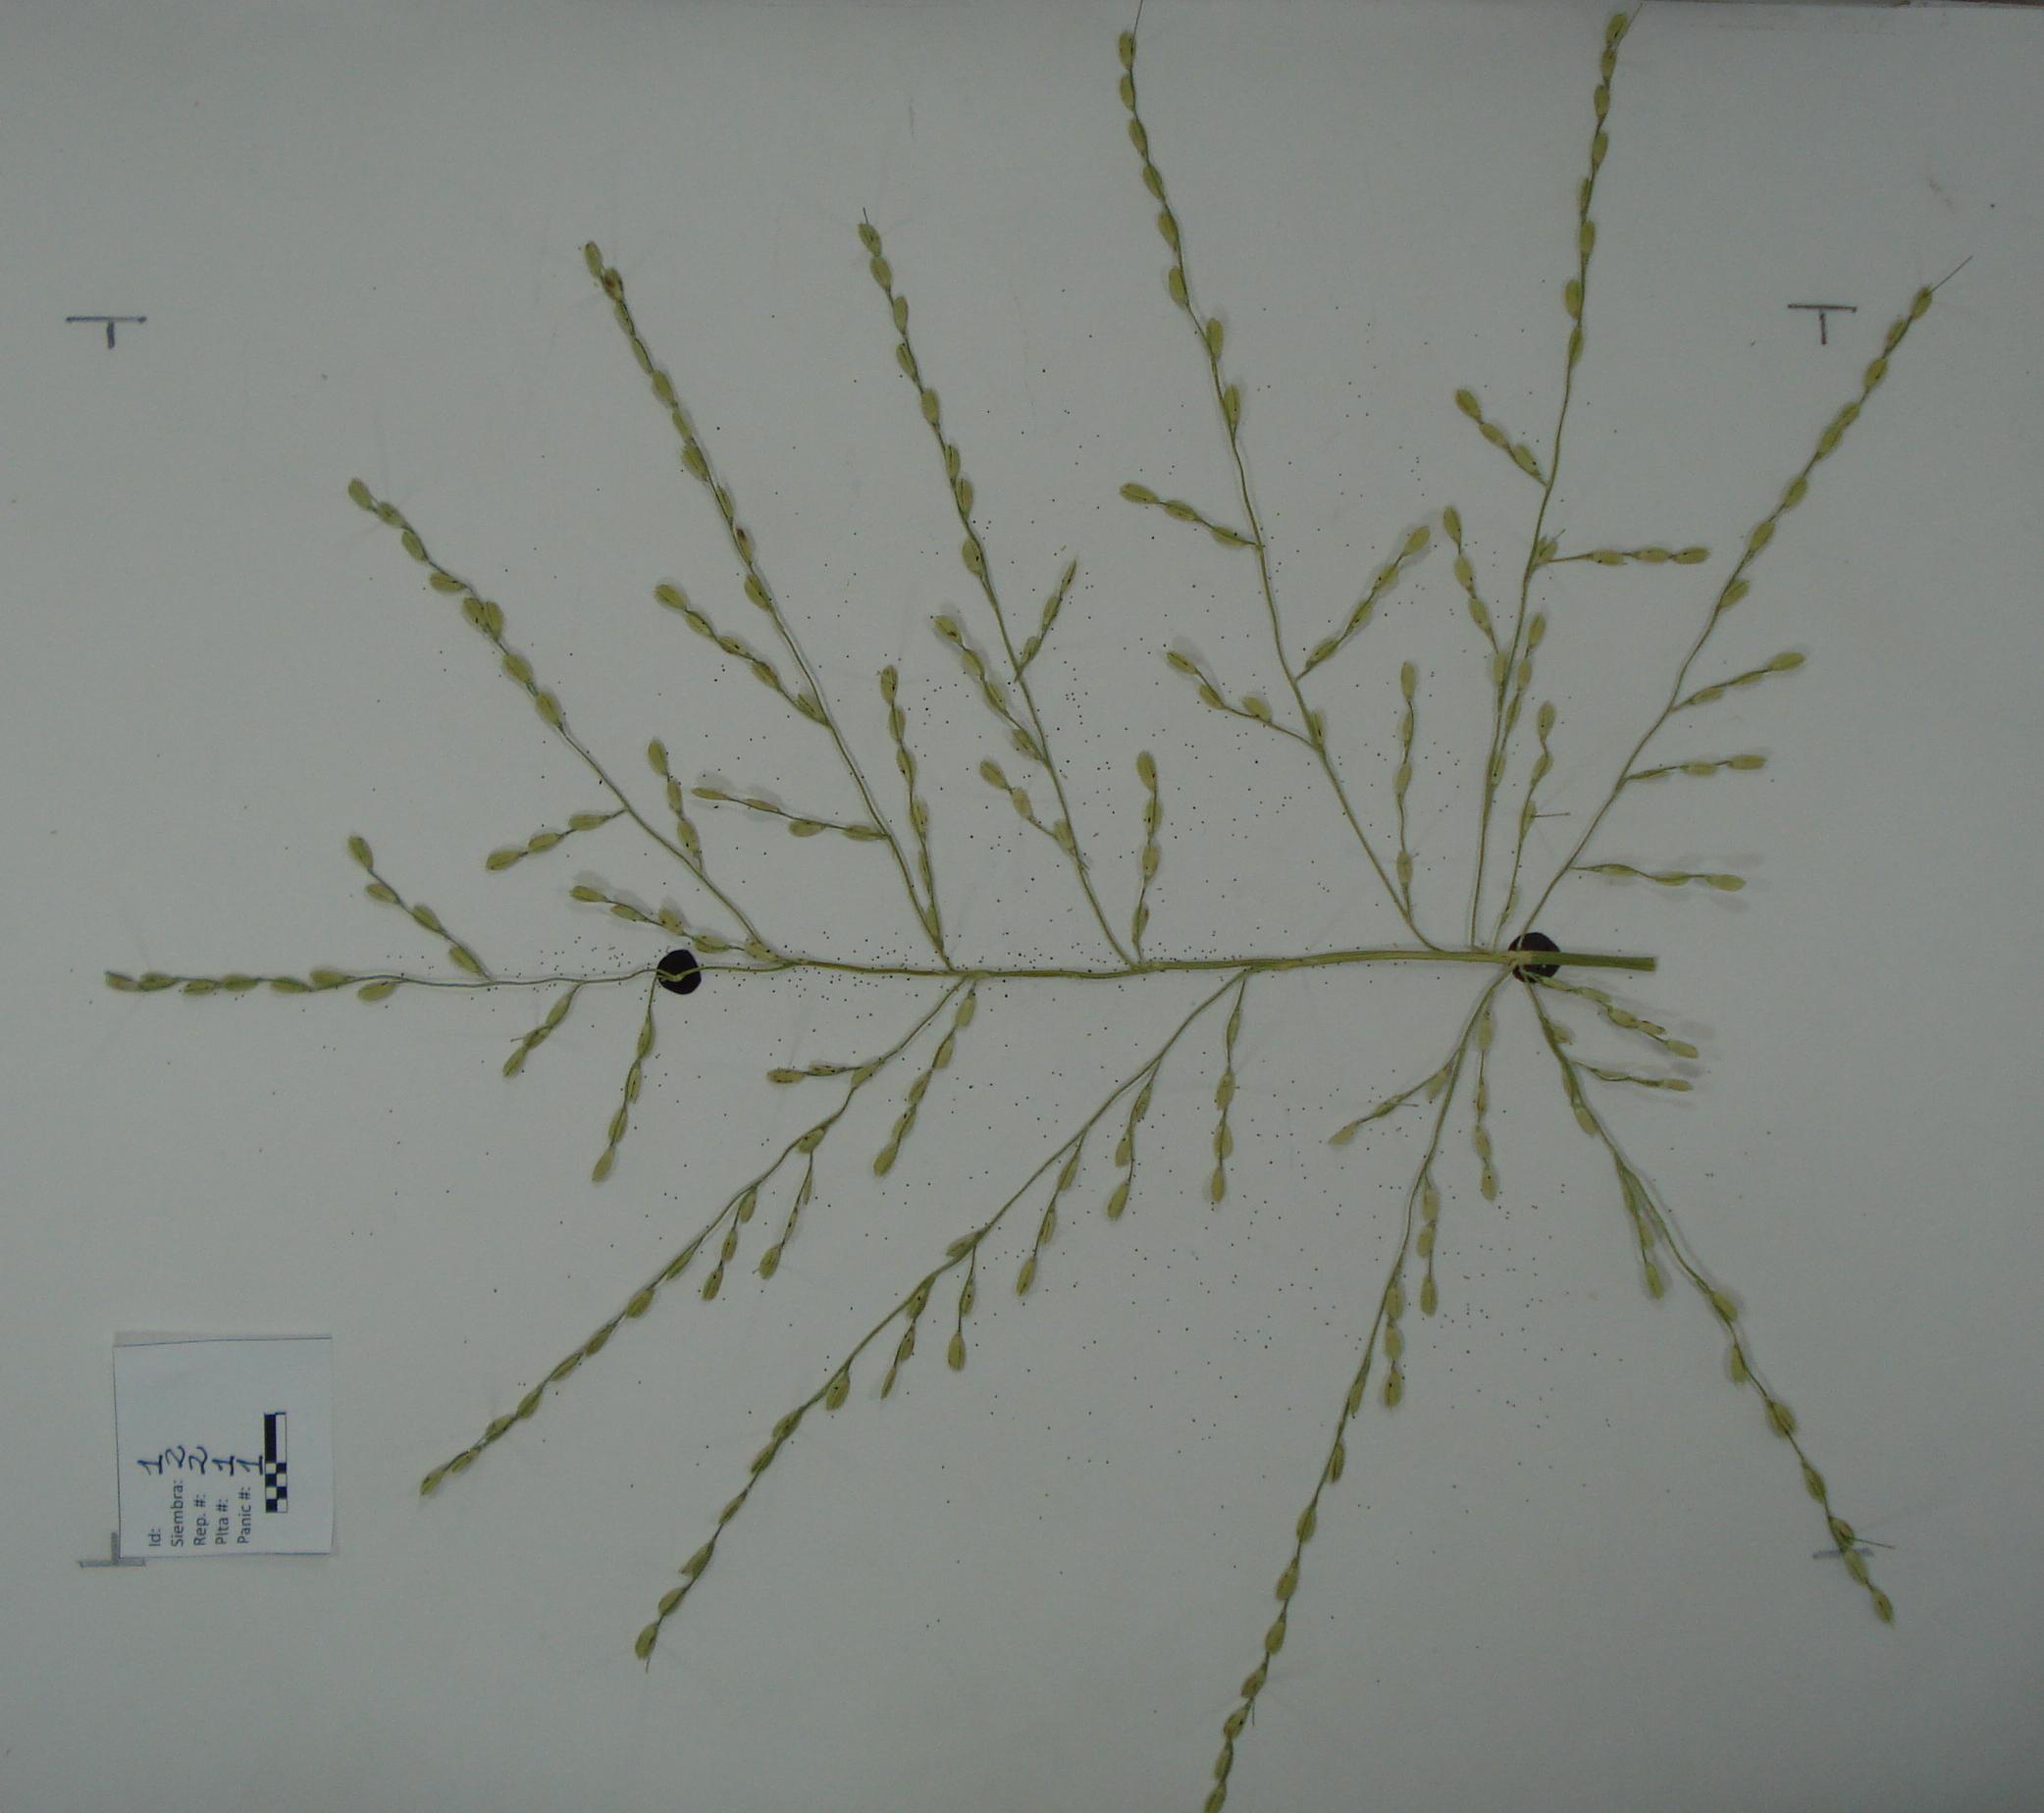 Id: 1
Siembra: 2
Rep. #: 2
Plta #: 1
Panic #: 1